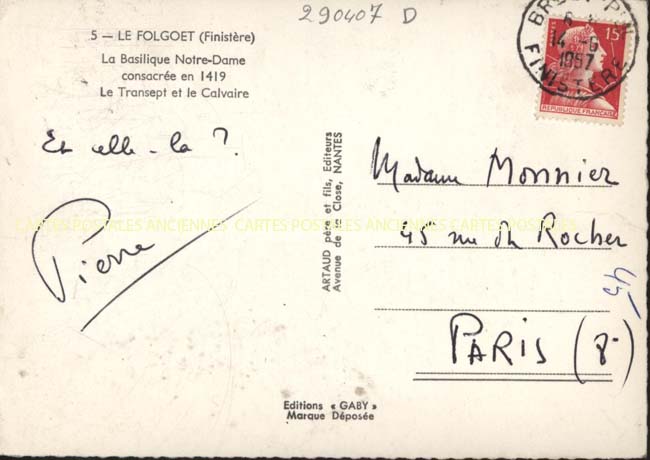 290407 D
5 — LE FOLGOET (Finistère)
La Basilique Notre-Dame
consacrée en 1419
Le Transept et le Calvaire
Et celle-là ?
Pierre
ARTAUD père et fils, Editeurs
Avenue de la Close, NANTES
Editions « GABY »
Marque Déposée
14 -6
1957
FINISTERE
15F
REPUBLIQUE FRANCAISE
Madame Monnier
45 rue du Rocher
45
PARIS (8e
CARTES POSTALES ANCIENNES CARTES POSTALES ANCIENNES CARTES POSTALES ANCIENNES